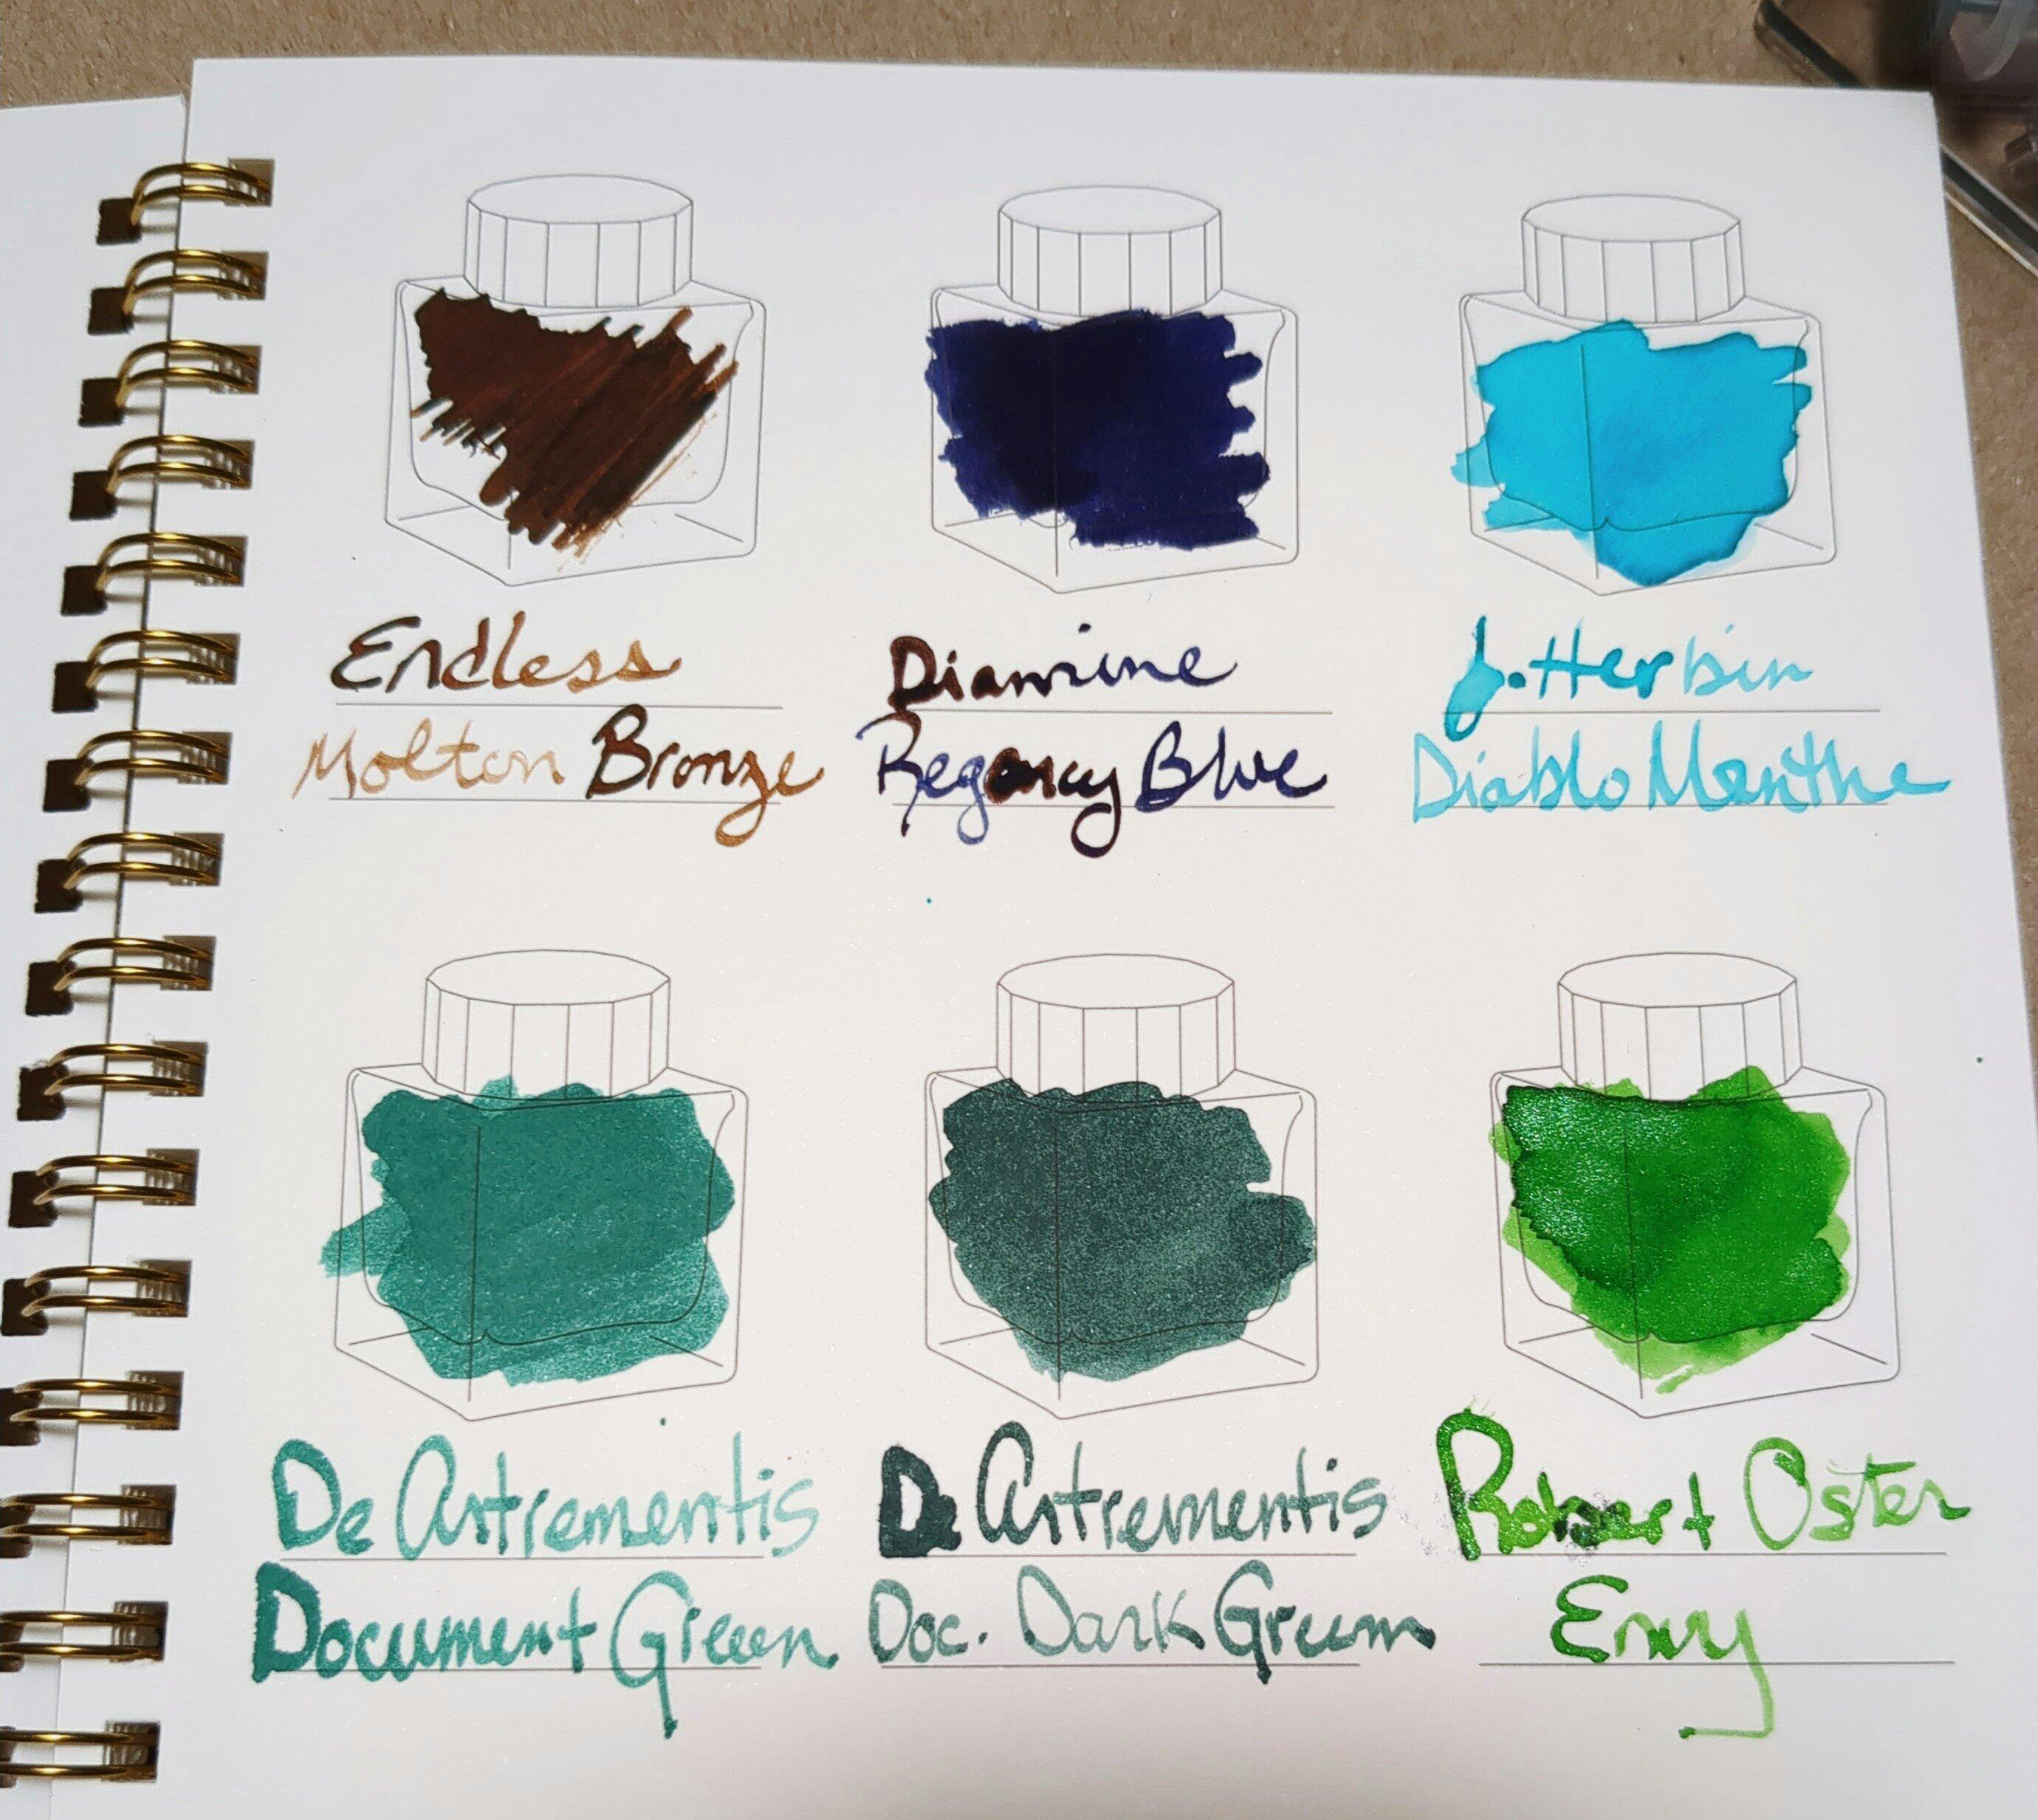 Endless
Molton Bronze
Diamine
Regency Blue
J. Herbin
Diablo Menthe
De Artrementis
Document Green
De Artrementis
Doc. Dark Green
Robert Oster
Envy